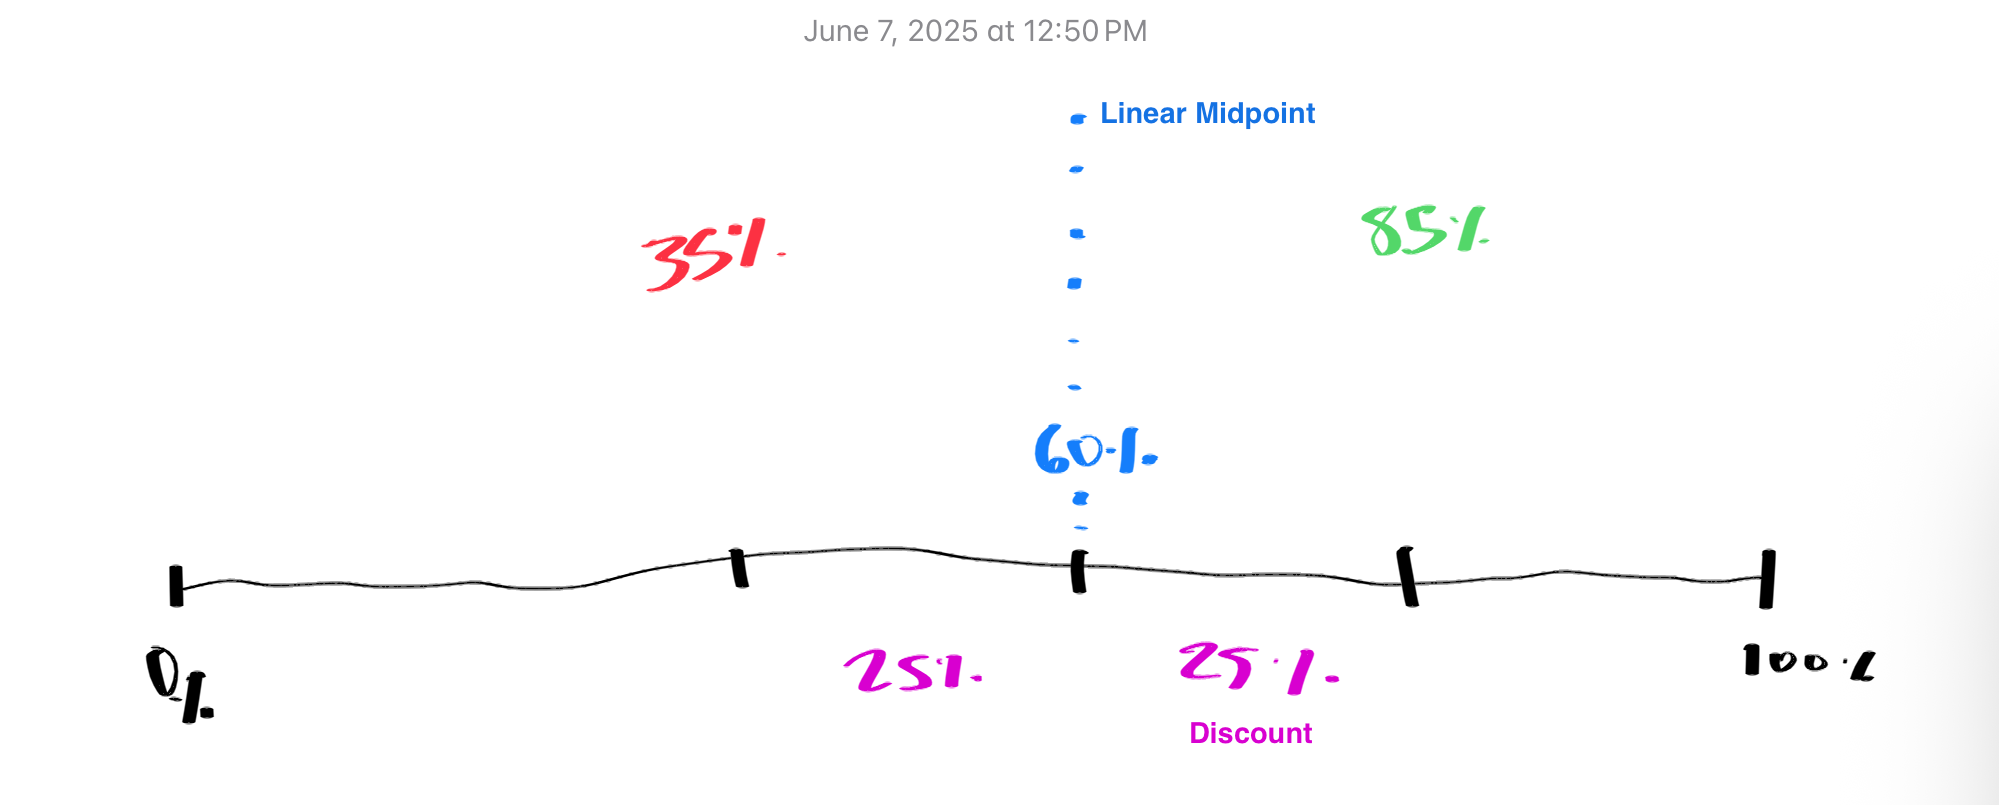 June 7, 2025 at 12:50 PM
Linear Midpoint
35%
85%
60%
0%
25%
25%
100%
Discount